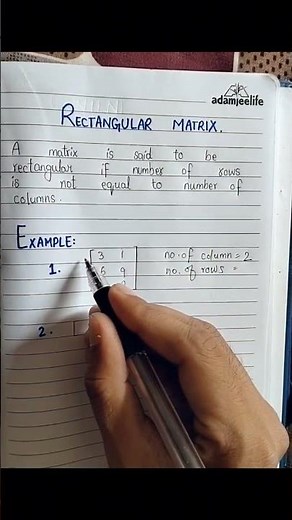 adamjeelife
RECTANGULAR MATRIX.
A matrix is said to be
rectangular if number of rows
is not equal to number of
columns.
EXAMPLE:
1. 3 1 no. of column = 2
5 9 no. of rows =
2.